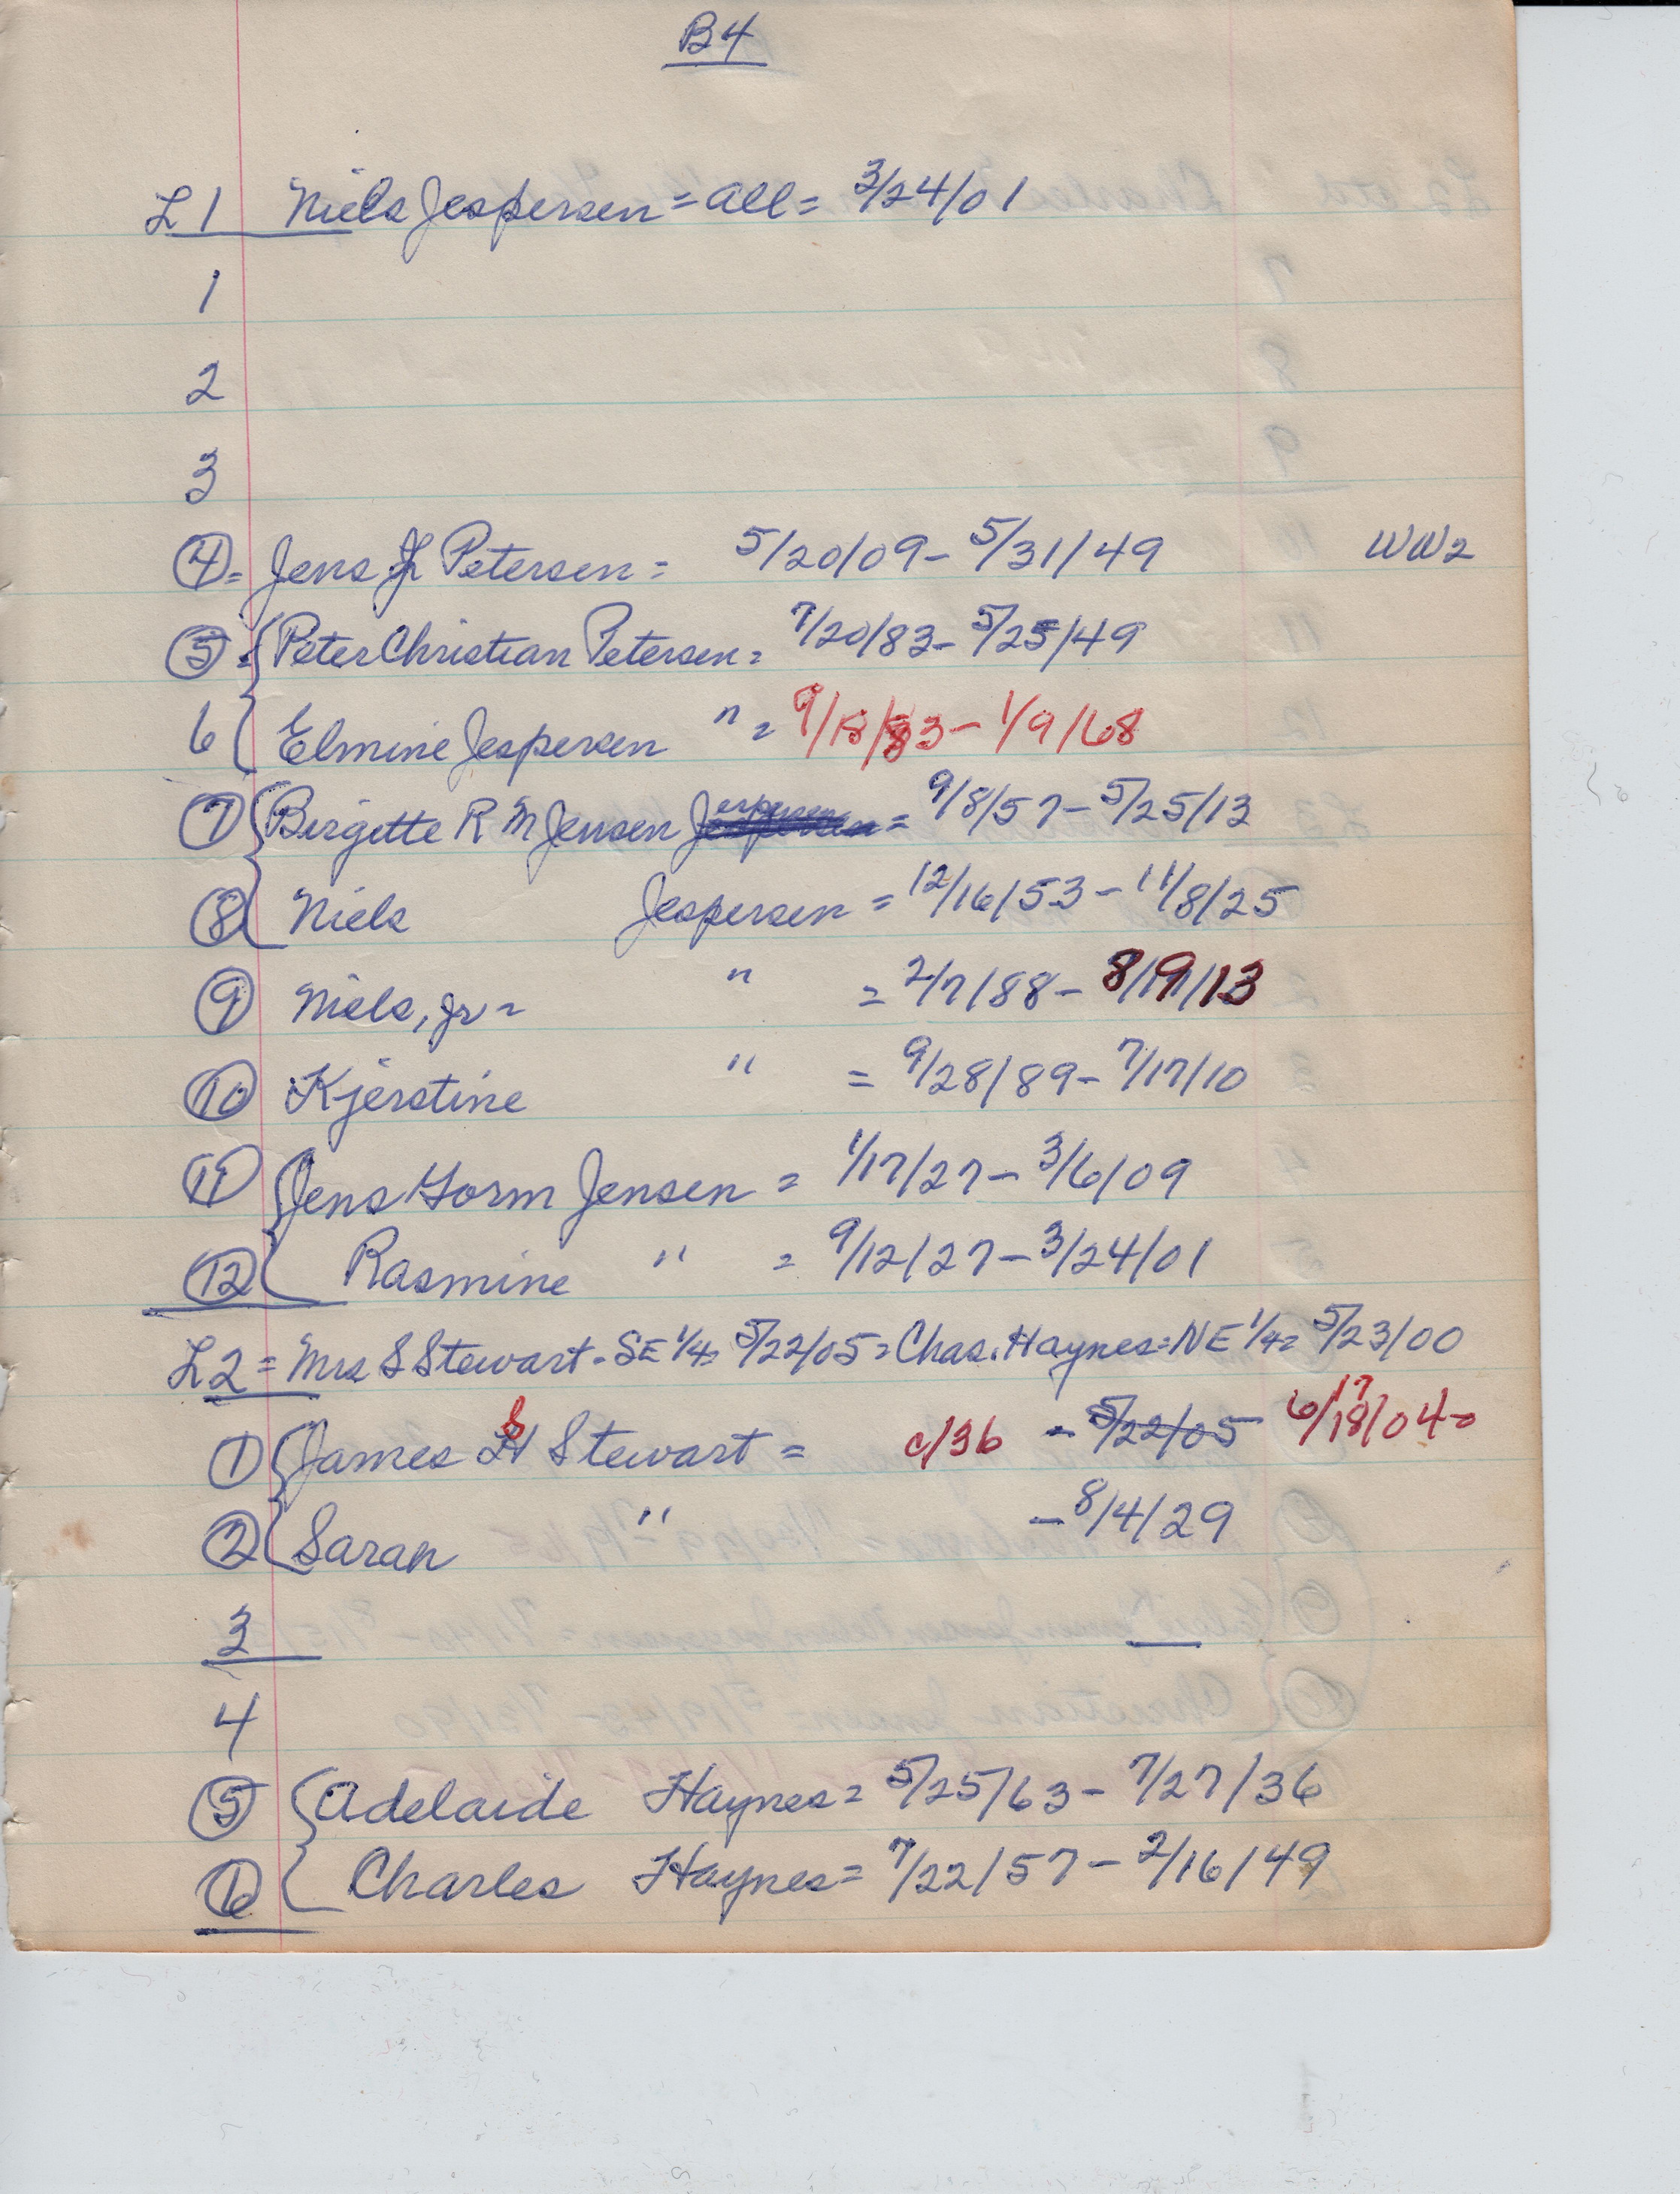 B4
L1 Niels Jespersen = all = 3/24/01
1
2
3
4 = Jens J Petersen = 5/20/09 - 5/31/49 WW2
5 { Peter Christian Petersen = 7/20/83 - 5/25/49
6 { Elmine Jespersen " = 9/18/83 - 1/9/68
7 { Birgitte R M Jensen Jespersen = 9/8/57 - 5/25/13
8 { Niels Jespersen = 12/16/53 - 11/8/25
9 Niels, Jr = " = 2/7/88 - 8/19/13
10 Kjerstine " = 9/28/89 - 7/17/10
11 { Jens Gorm Jensen = 1/17/27 - 3/6/09
12 { Rasmine " = 9/12/27 - 3/24/01
L2 = Mrs S Stewart = SE 1/4 = 5/22/05 = Chas. Haynes = NE 1/4 = 5/23/00
1 { James S Stewart = c/36 - 5/22/05 6/18/04 =
17
2 { Sarah " - 8/4/29
3 —
4
5 { Adelaide Haynes = 5/25/63 - 7/27/36
6 { Charles Haynes = 7/22/57 - 2/16/49